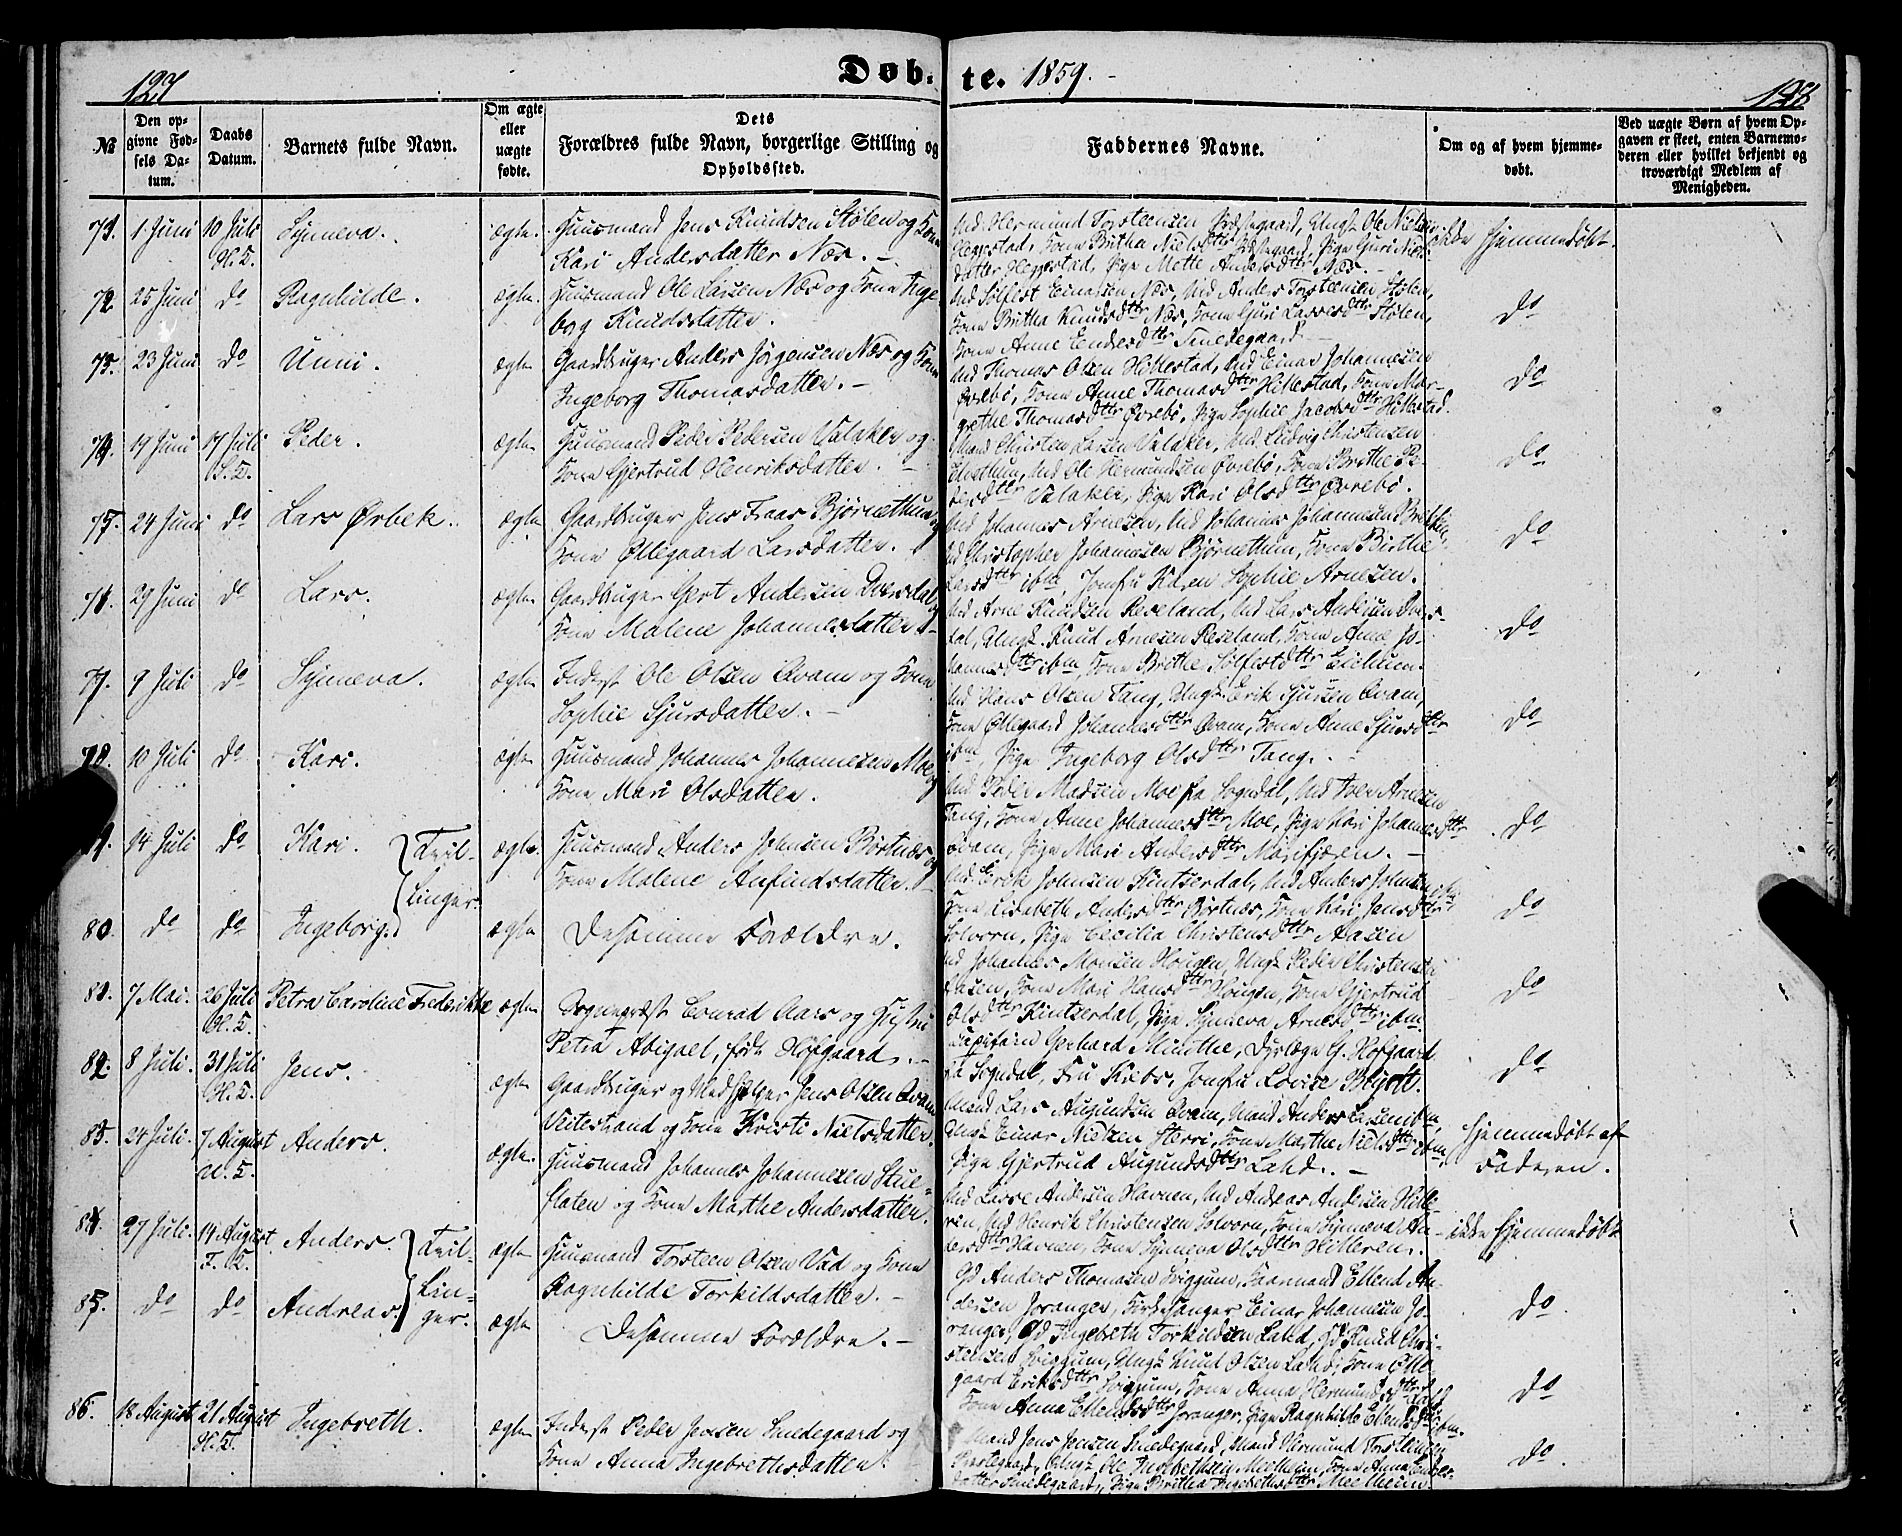 127
Døb-
te. 1859.-
128
№
Den op-
givne Fød-
sels Da-
tum.
Daabs
Datum.
Barnets fulde Navn.
Om ægte
eller
uægte
fødte.
Dets
Forældres fulde Navn, borgerlige Stilling og
Opholdssted.
Faddernes Navne.
Om og af hvem hjemme-
døbt.
Ved uægte Børn af hvem Op-
gaven er skeet, enten Barnemo-
deren eller hvilket bekjendt og
troværdigt Medlem af
Menigheden.
71. 1 Juni 10 Juli Synneva. ægte. Huusmand Jens Knudsen Stølen og Kone
H. K. Kari Andersdatter Næs. -
Md Hermund Torsteensen Prestegaard, Ungk Ole Nielsen
Heggestad, Kone Brita Nielsdttr Prestegaard, Pige Guri Niels-
datter Heggestad, Pige Mette Andersdttr Næs. -
ikke hjemmedøbt.
72. 25 Juni do Ragnhilde. ægte. Huusmand Ole Larsen Næs og Kone Inge-
borg Knudsdatter.
Md Solfest Einarsen Næs, Md Anders Torsteensen Stølen,
Kone Britha Knudsdttr Næs, Kone Guri Lassesdttr Stølen,
Kone Anne Endresdttr Smedegaard.
do
73. 23 Juni do Unni. ægte Gaardbruger Anders Jørgensen Næs og Kone
Ingeborg Thomasdatter. -
Md Thomas Olsen Hillestad, Md Einar Johannesen
Øvrebø, Kone Anne Thomasdttr Hillestad, Kone Mar-
grethe Thomasdttr Øvrebø, Pige Sophie Jacobsdttr Hillestad.
do
74. 19 Juni 17 Juli Peder. ægte Huusmand Peder Pedersen Valaker og
S. K. Kone Gjertrud Henriksdatter. -
Mand Christen Larsen Valaker, Md Ludvig Christensen
Md Ole Hermundsen Øvrebø, Kone Brithe Pe-
dersdttr Valaker, Pige Kari Olsdttr Øvrebø.
do
75. 24 Juni do Lars Ørbek. ægte Gaardbruger Jens Fraas Bjørnethun og
Kone Øllegaard Larsdatter.
Md Johannes Arnesen, Md Johannes Johannesen
Md Christopher Johannesen Bjørnethun, Kone Birthe
Larsdttr ibm Jomfru Karen Sophie Arnesen.
do
76. 29 Juni do Lars. ægte Gaardbruger Gert Andersen Dversdal og
Kone Malene Johannesdatter. -
Md Arne Knudsen Reseland, Md Lars Andersen Dvers-
dal, Ungk. Knud Arnesen Reseland, Kone Anne Jo-
hannesdttr ibm, Kone Brithe Solfestdttr Eichum.
do
77. 9 Juli do Synneva. ægte Inderst Ole Olsen Qvam og Kone
Sophie Sjursdatter. -
Md Hans Olsen Tang, Ungk Erik Sjursen Qvam,
Kone Øllegaard Johannesdttr Qvam, Kone Anne Sjursdttr
ibm, Pige Ingeborg Olsdttr Tang. -
do
78. 10 Juli do Kari. ægte Huusmand Johannes Johannesen Moe og
Kone Mari Olsdatter.
Md Peder Madsen Moe fra Sogndal, Md Iver Arnesen
Tang, Kone Anne Johannesdttr Moe, Pige Kari Johannesdttr
Qvam, Pige Mari Andersdttr Marifjæren. -
do
79. 14 Juli do Kari. Tvil- ægte. Huusmand Anders Johnsen Børtnæs og
linger. Kone Malene Anfindsdatter. -
Md Erik Johnsen Kintserdal, Md Anders Johnsen ibm
Kone Lisabeth Andersdttr Børtnæs, Kone Kari Jensdttr
Solvorn, Pige Cecilia Christensdttr Aasen
do
80. do do Ingeborg. ægte Desamme Forældre.
Md Johannes Monsen Hougen, Ungk Peder Christensen
Aasen, Kone Mari Hansdttr Hougen, Kone Gjertrud
Olsdttr Kintzerdal, Pige Synneva Arnesdttr ibm.
do
81. 7 Mai. 26 Juli Petra Caroline Frederikke ægte Sogneprest Conrad Aars og Hustru
H. K. Petra Abigael, født Hofgaard. -
Capitain Gerhard Munthe, Dyrlæge G. Hofgaard
fra Sogndal, Fru Krebs, Jomfru Lovise Blytt.
do
82. 8 Juli. 31 Juli Jens. ægte Gaardbruger og Medhjelper Jens Olsen Qvam
H. K. Veitestrand og Kone Kristi Nielsdatter.
Mand Lars Augundsen Qvam, Mand Anders Larsen ibm,
Ungk Einar Nielsen Herri, Kone Marthe Nielsdttr ibm,
Pige Gjertrud Augundsdttr Lahd. -
Hjemmedøbt af
Faderen.
83. 24 Juli. 7 August Anders. ægte. Huusmand Johannes Johannesen Stue-
U. K. flaten og Kone Marthe Andersdatter.
Md Lasse Andersen Havnen, Md Andreas Andersen Hille-
ren, Md Henrik Christensen Solvorn, Kone Synneva An-
dersdttr Havnen, Kone Synneva Olsdttr Hilleren.
ikke hjemmedøbt
84. 27 Juli. 14 August Anders. Tvil- ægte Huusmand Torsteen Olsen Vad og Kone
F. K. Lin- Ragnhilde Torkildsdatter. -
ger.
Gd Anders Thomasen Sviggum, Kaarmand Ellend An-
dersen Joranger, Kirkesanger Einar Johannesen Jo-
ranger, Gd Ingebreth Torkildsen Lahd, Gd Knud Chri-
do
85. do do Andreas. ægte Desamme Forældre. -
stensen Sviggum, Ungk Knud Olsen Lahd, Kone Olle-
gaard Eriksdttr Sviggum, Kone Anna Hermundsdttr Lahd
Kone Anna Ellendsdttr Joranger, Pige Ragnhilde Ellendsdttr ibm.
do
86. 18 August 21 August Ingebreth. ægte Inderst Peder Jensen Smedegaard og
H. K. Kone Anna Ingebrethsdatter.
Mand Jens Jensen Smedegaard, Mand Hermund Torsteensen
Prestegaard, Ungk Ole Ingebrethsen Melheim, Kone Anna Endres-
datter Smedegaard, Pige Britha Ingebrethsdttr Melheim.
do.